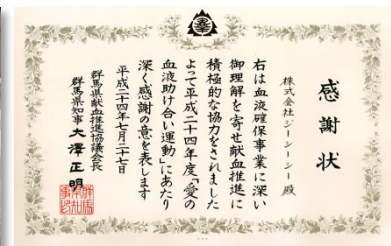 感謝状
株式会社ジーシーシー殿
右は血液確保事業に深い
御理解を寄せ献血推進に
積極的な協力をされました
よって平成二十四年度「愛の
血液助け合い運動」にあたり
深く感謝の意を表します
平成二十四年七月二十七日
群馬県献血推進協議会長
群馬県知事大澤正明